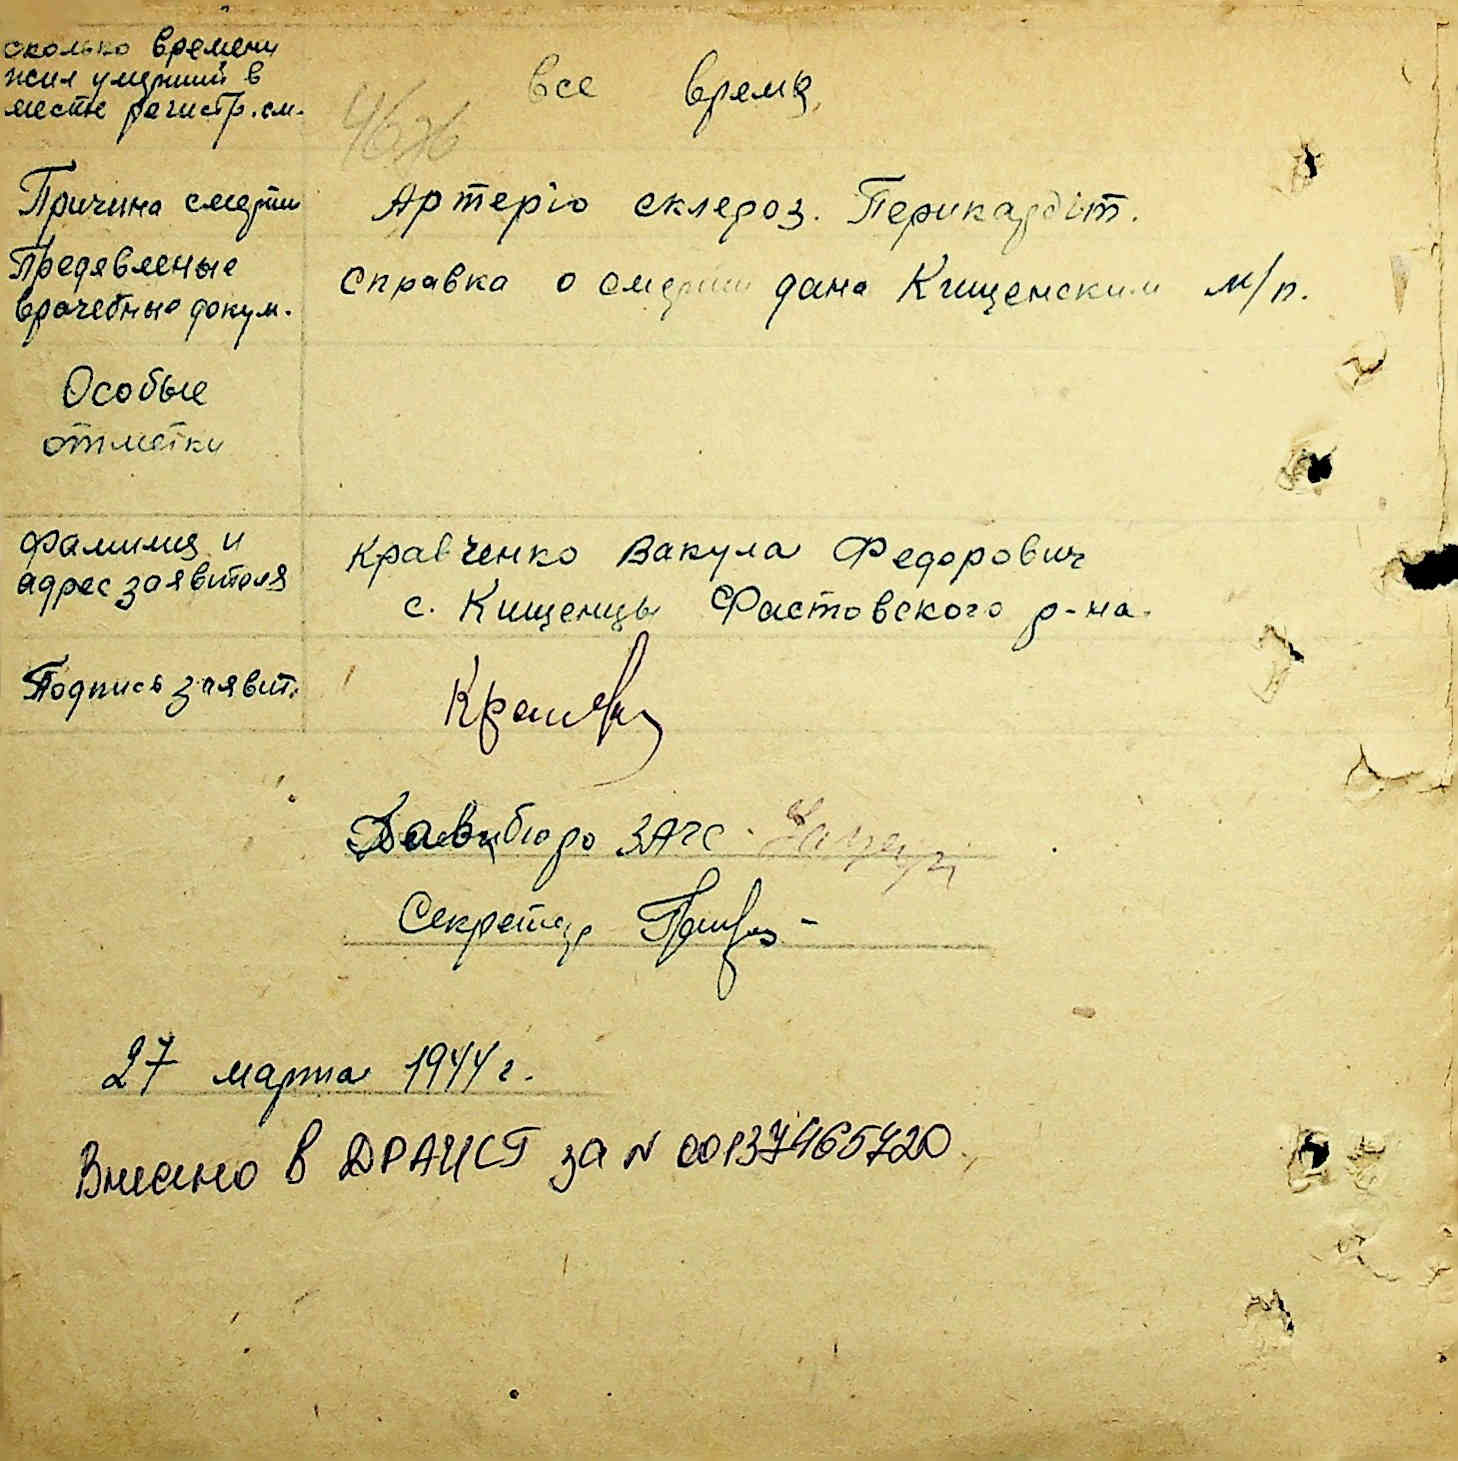 сколько времени
жил умерший в
месте регистр. см.
все время
Причина смерти
Артеріо склероз. Перикардіт.
Предявленые
врачебные докум.
Справка о смерти дана Кищенским м/п.
Особые
отметки
фамилия и
адрес заявителя
Кравченко Вакула Федорович
с. Кищенцы Фастовского р-на.
Подпись заявит.
бюро ЗАГС
Секретарь
27 марта 1944 г.
Внесено в ДРАЦСГ за N 00137465720